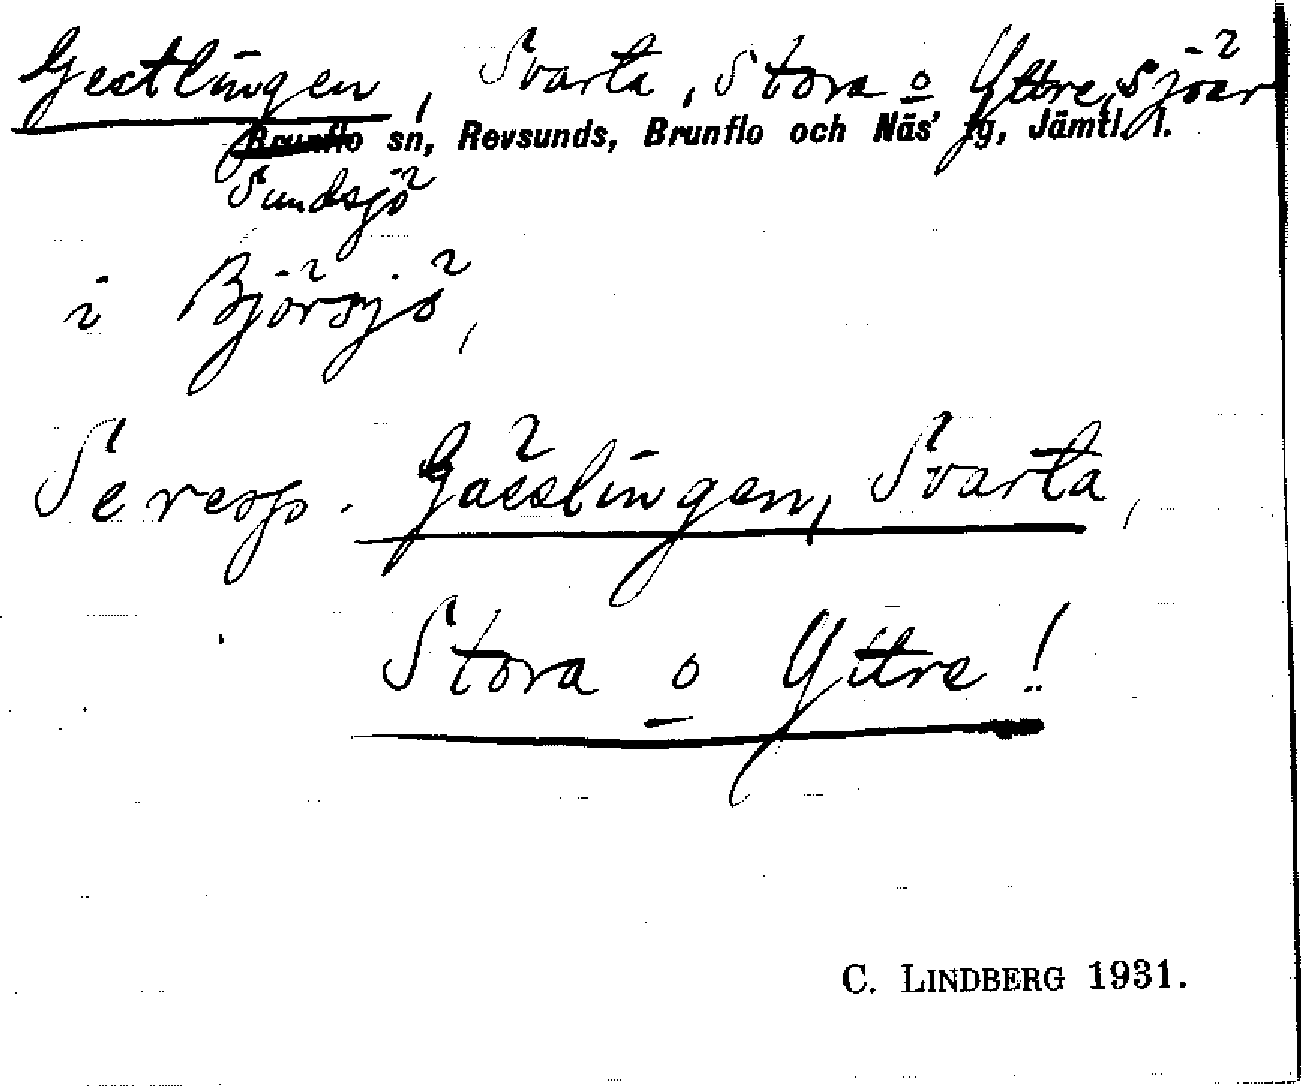 Gestlingen, Svarta, Stora o Yttre, sjöar
Brunflo sn, Revsunds, Brunflo och Näs' tg, Jämtl. l.
Sundsjö
i Björsjö,
Se resp. Gäeslingen, Svarta,
Stora o Yttre!
C. LINDBERG 1931.